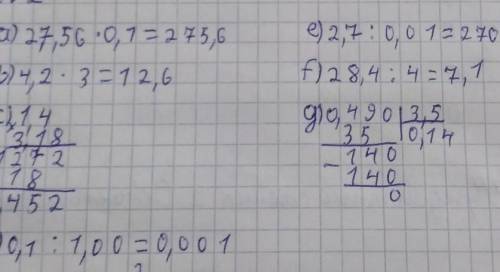 a) 27,56 · 0,1 = 275,6
b) 4,2 · 3 = 12,6
1,4
3,18
1272
18
,452
) 0,1 : 1,00 = 0,001
e) 2,7 : 0,01 = 270
f) 28,4 : 4 = 7,1
g) 0,490 3,5
35 0,14
- 140
140
0